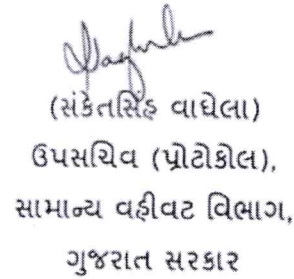 (સંકેતસિંહ વાઘેલા)
ઉપસચિવ (પ્રોટોકોલ),
સામાન્ય વહીવટ વિભાગ,
ગુજરાત સરકાર